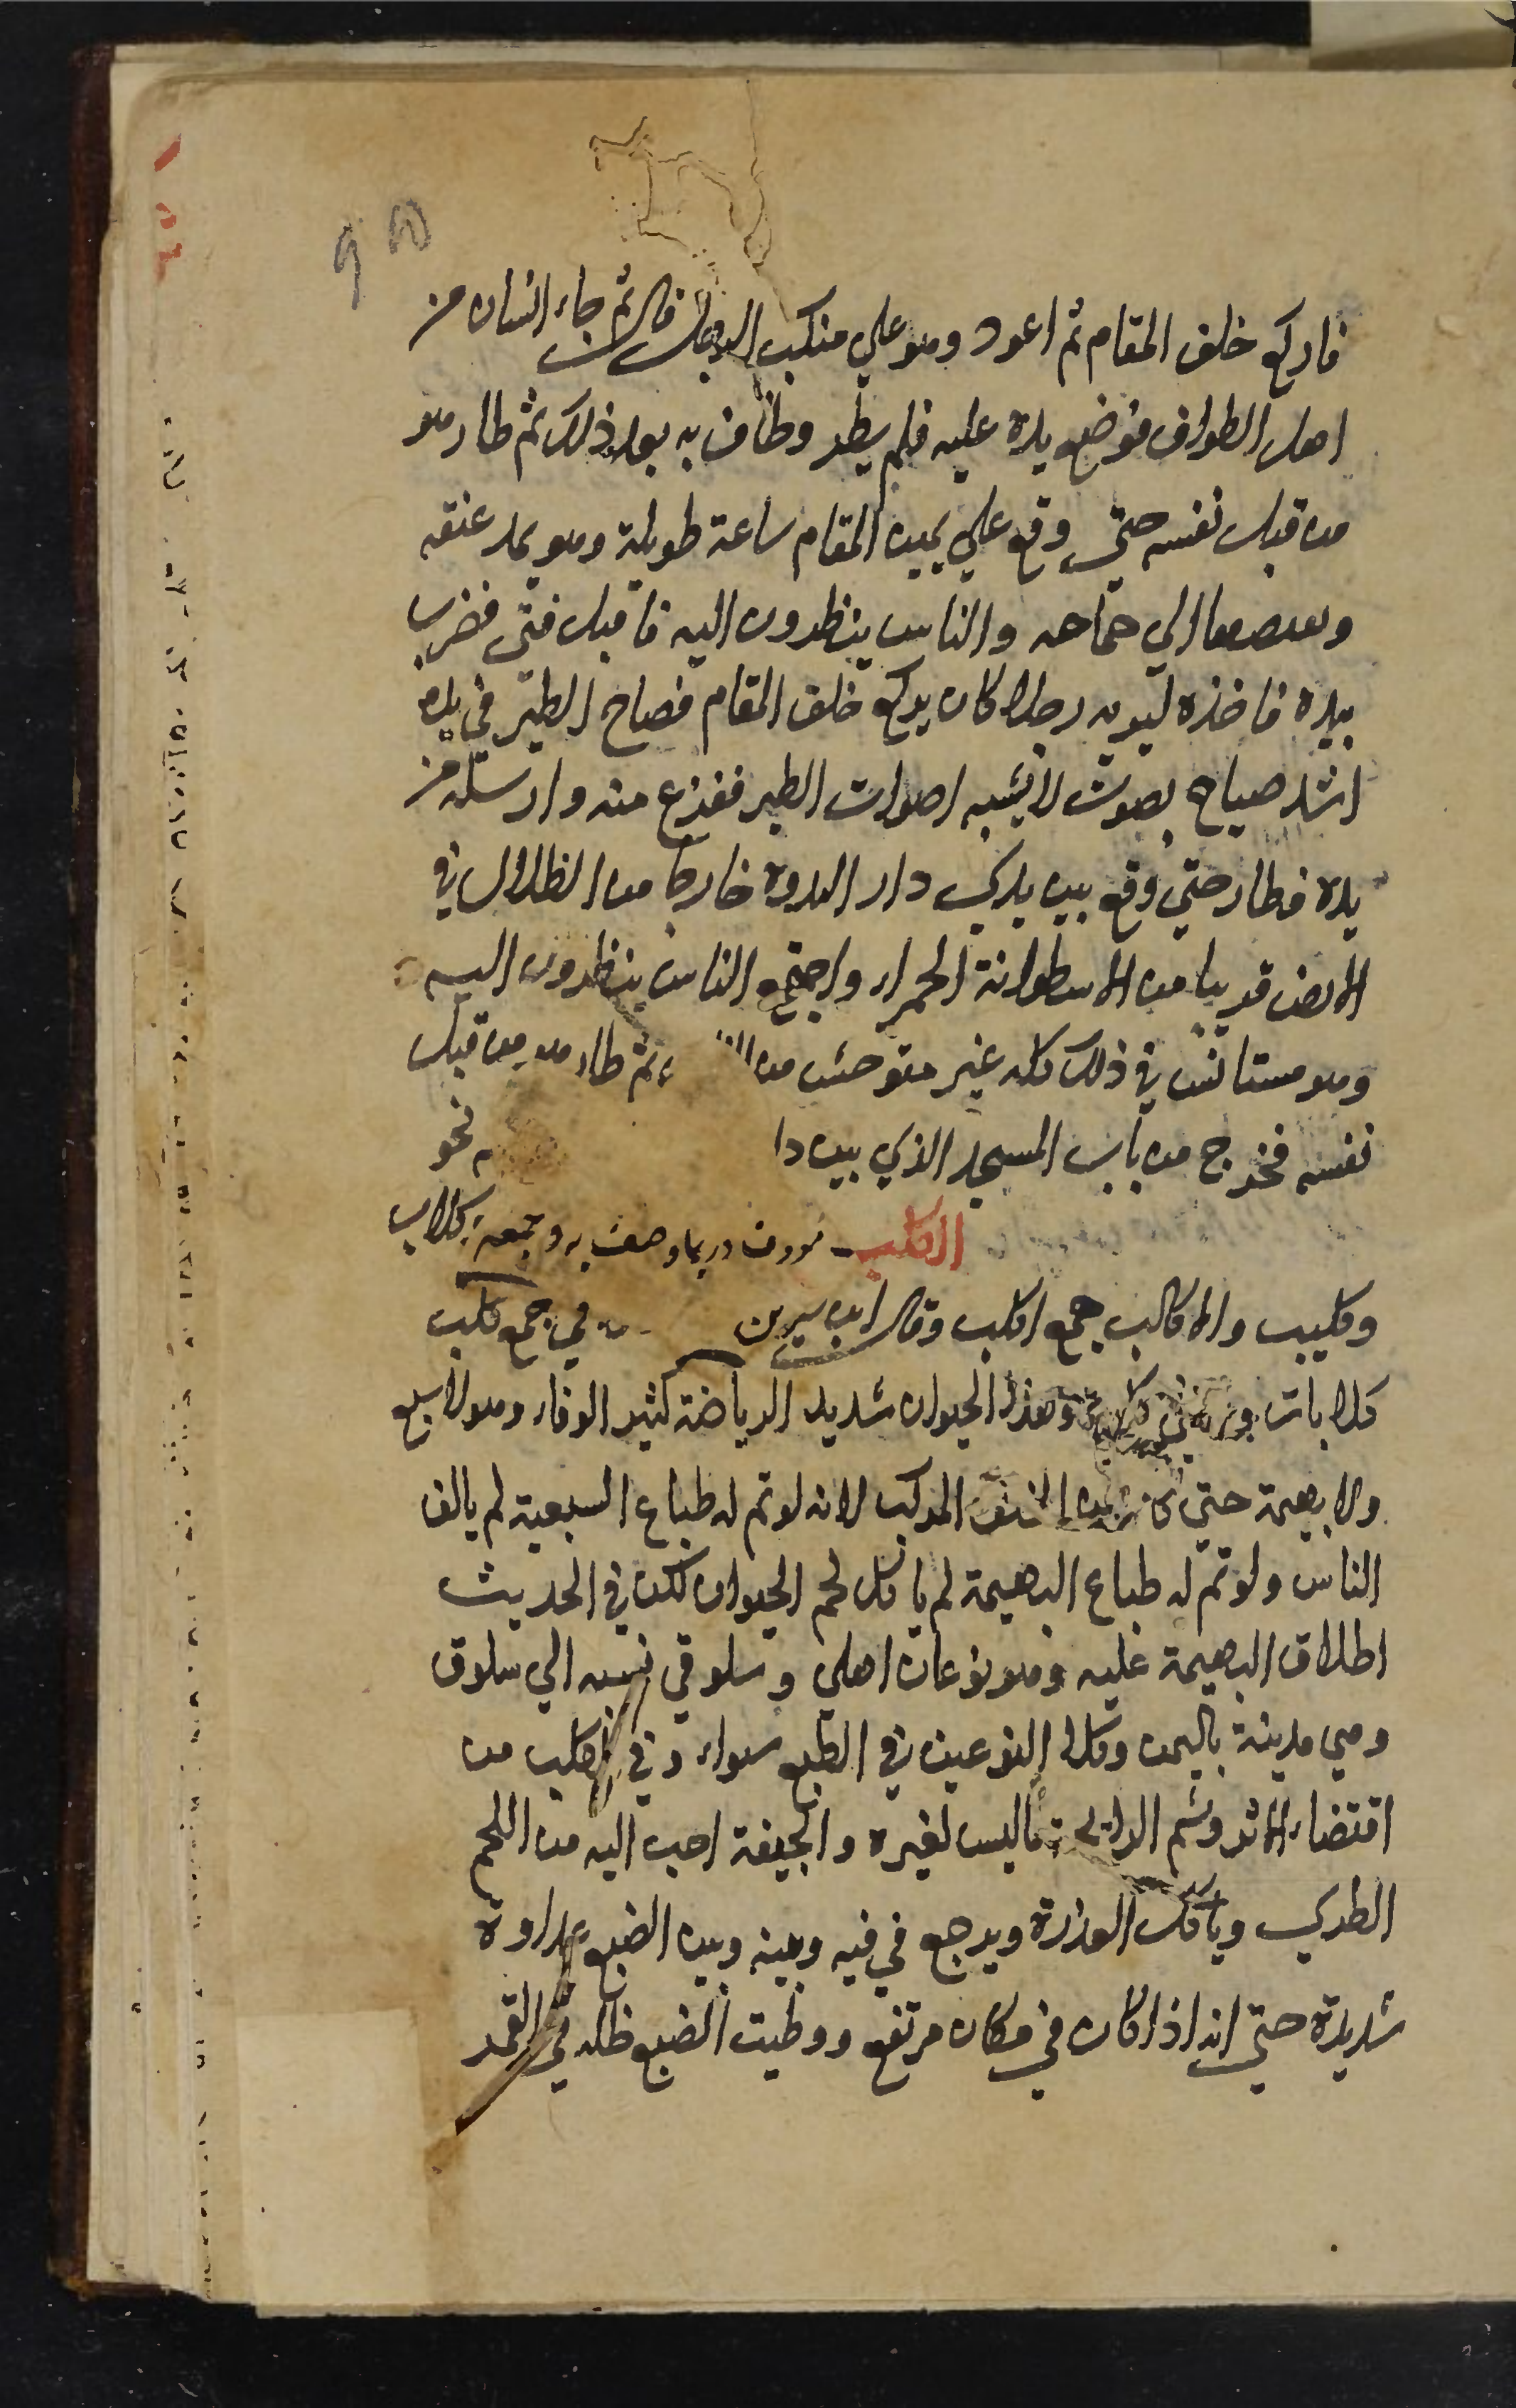 فاركع خلف المقام ثم اعود وهو علي منكب الرجل قال ثم جاء انسان من
اهل الطواف فوضع يده عليه فلم يطر وطاف به بعد ذلك ثم طار هو
من قبل نفسه حتي وقع علي يمين المقام ساعة طويلة وهو يمد عنقه
الي جناحه والناس ينظرون اليه فاقبل فتى فضرب
بيده فاخذه ليريه رجلا كان يركع خلف المقام فصاح الطير في يده
اشد صياح بصوت لا يشبه اصوات الطير ففزع منه وارسله من
يده فطار حتي وقع بين يدي دار الندوة خارجا من الظلال في
الارض قريبا من الاسطوانة الحمراء واجتمع الناس ينظرون اليه
وهو مستانس في ذلك كله غير متوحش من ثم طار هو من قبل
نفسه فخرج من باب المسجد الذي بين دا نحو
الكلب معروف وربما وصف به وجمعه كلاب
وكليب والاكالب جمع اكلب وقال ابن سيرين في جمع كلب
كلابات وهذا الحيوان شديد الرياضة كثير الوفاء وهو لا سبع
ولا بهيمة حتي كانه من الخلق المركب لانه لو تم له طباع السبعية لم يالف
الناس ولو تم له طباع البهيمة لم ياكل لحم الحيوان لكن في الحديث
اطلاق البهيمة عليه وهو نوعان اهلي وسلوقي نسبه الي سلوق
وهي مدينة باليمن وكلا النوعين في الطبع سواء وفي الكلب من
اقتضاء الاثر وشم الرايحة ما ليس لغيره والجيفة احب اليه من اللحم
الطري وياكل العذرة ويرجع في قيه وبينه وبين الضبع عداوة
شديدة حتي انه اذا كان في مكان مرتفع ووطيت الضبع ظله في القمر